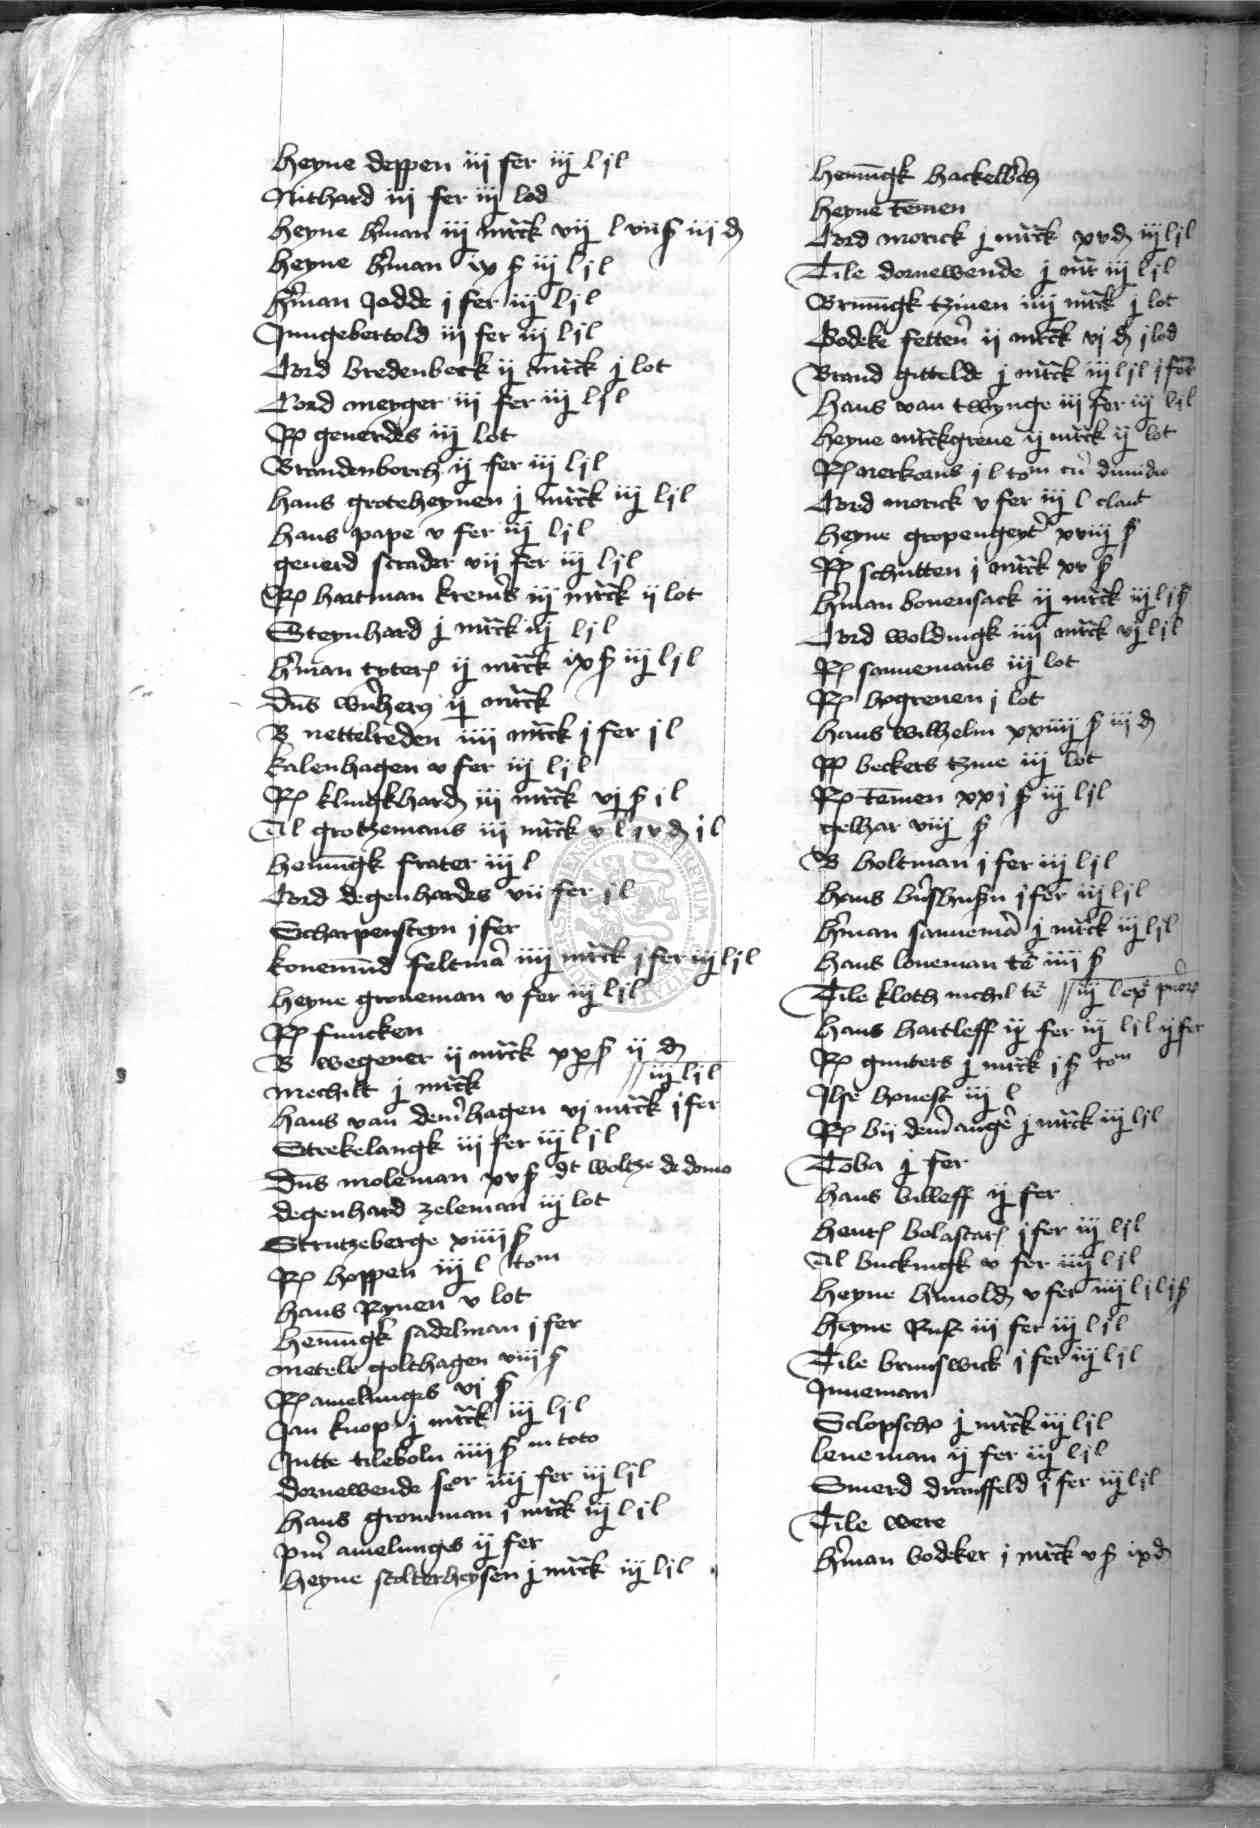 heyne deppen iij fer iij l j l
Nithard iij fer iij lod
heyne h'man iij mrck vij l viii ß iij d
heyne h'man ix ß iij l j l
h'man Jodde j fer iij l j l
Jungebertold iij fer iij l j l
Cord bredenbeck ij mrck j lot
Cord meyger iij fer iij l j l
Rp geuerdes iij lot
Brandenborch ij fer iij l j l
hans groteheynen j mrck iij l j l
hans pape v fer iij l j l
geuerd scrader vij fer iij l j l
Rp hartman krem's iij mrck ij lot
Steynhard j mrck iij l j l
h'man tyter ij mrck ix ß iij l j l
dns ij mrck
B nettelreden iiij mrck j fer j l
kalenhagen v fer iij l j l
Rp klingkhard iij mrck vj ß j l
Al grotzemans iij mrck v l iv d j l
henningk frater iij l
Cord degenhardes vii fer j l
Scharpensteyn j fer
konemund feltma iiij mrck j fer iij l j l
heyne groneman v fer iij l j l
Rp funcken
B wegener ij mrck xx ß ij d
mechilt j mrck // iij l j l
hans van dem hagen vj mrck j fer
Strekelangk iij fer iij l j l
dns moleman xv ß dt woltze de domo
degenhard zeleman iij lot
Strutzeberge xiiii ß
Rp hoppen iij l tom
hans Rynen v lot
henningk sadelman j fer
metele golthagen viij ß
Rp amelunges vj ß
Jan knop j mrck iij l j l
Jutte tileboln iiij ß in toto
dornewende ser iiij fer iij l j l
hans groneman j mrck iij l j l
amelunges ij fer
heyne stolterheysen j mrck iij l j l
henningk hackelb'ch
heyne temen
Cord morick j mrck xv d iij l j l
Tile dornewende j mr iij l j l
Brunningk tzinen iiij mrck j lot
Bodeke fetten ij mrck vj d j lod
Brand gittelde j mrck iij l j l j fer
hans van twynge iij fer iij l j l
heyne mrckgreue ij mrck ij lot
Rp merkouis j l tom cu dimidio
Cord morick v fer iij l
heyne gropengeyt' xviij ß
Rp schutten j mrck xv ß
h'man bouensack ij mrck iij l j ß
Cord woldingk iiij mrck vj l j l
Rp sannemans iij lot
Rp hogreuen j lot
hans wilhelm xxiiij ß iij d
Rp beckers tzine iij lot
Rp temen xxj ß iij l j l
gelhar viij ß
B holtman j fer iij l j l
hans j fer iij l j l
h'man sannema j mrck iij l j l
hans loneman te iiij ß
Tile kloth nichil te // iij l
hans hartleff ij fer iij l j l ij fer
Rp gunters j mrck j ß tom
Ilse honest iij l
Rp bij dem ang'e j mrck iij l j l
Toba j fer
hans billeff ij fer
henr bolastar j fer iij l j l
Al buckingk v fer iiij l j l
heyne hunold v fer iiij l j l j ß
heyne Rusz iij fer iij l j l
Tile brunswick j fer iij l j l
Junneman
j mrck iij l j l
leneman ij fer iij l j l
Smerd dransfeld j fer iij l j l
Tile were
h'man bodeker j mrck v ß ix d